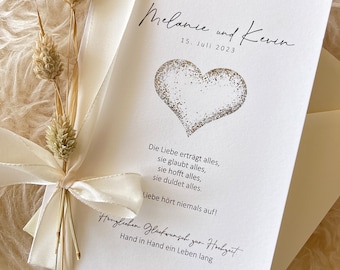 Melanie und Kevin
15. Juli 2023
Die Liebe erträgt alles,
sie glaubt alles,
sie hofft alles,
sie duldet alles.
Liebe hört niemals auf!
Herzlichen Glückwunsch zur Hochzeit
Hand in Hand ein Leben lang